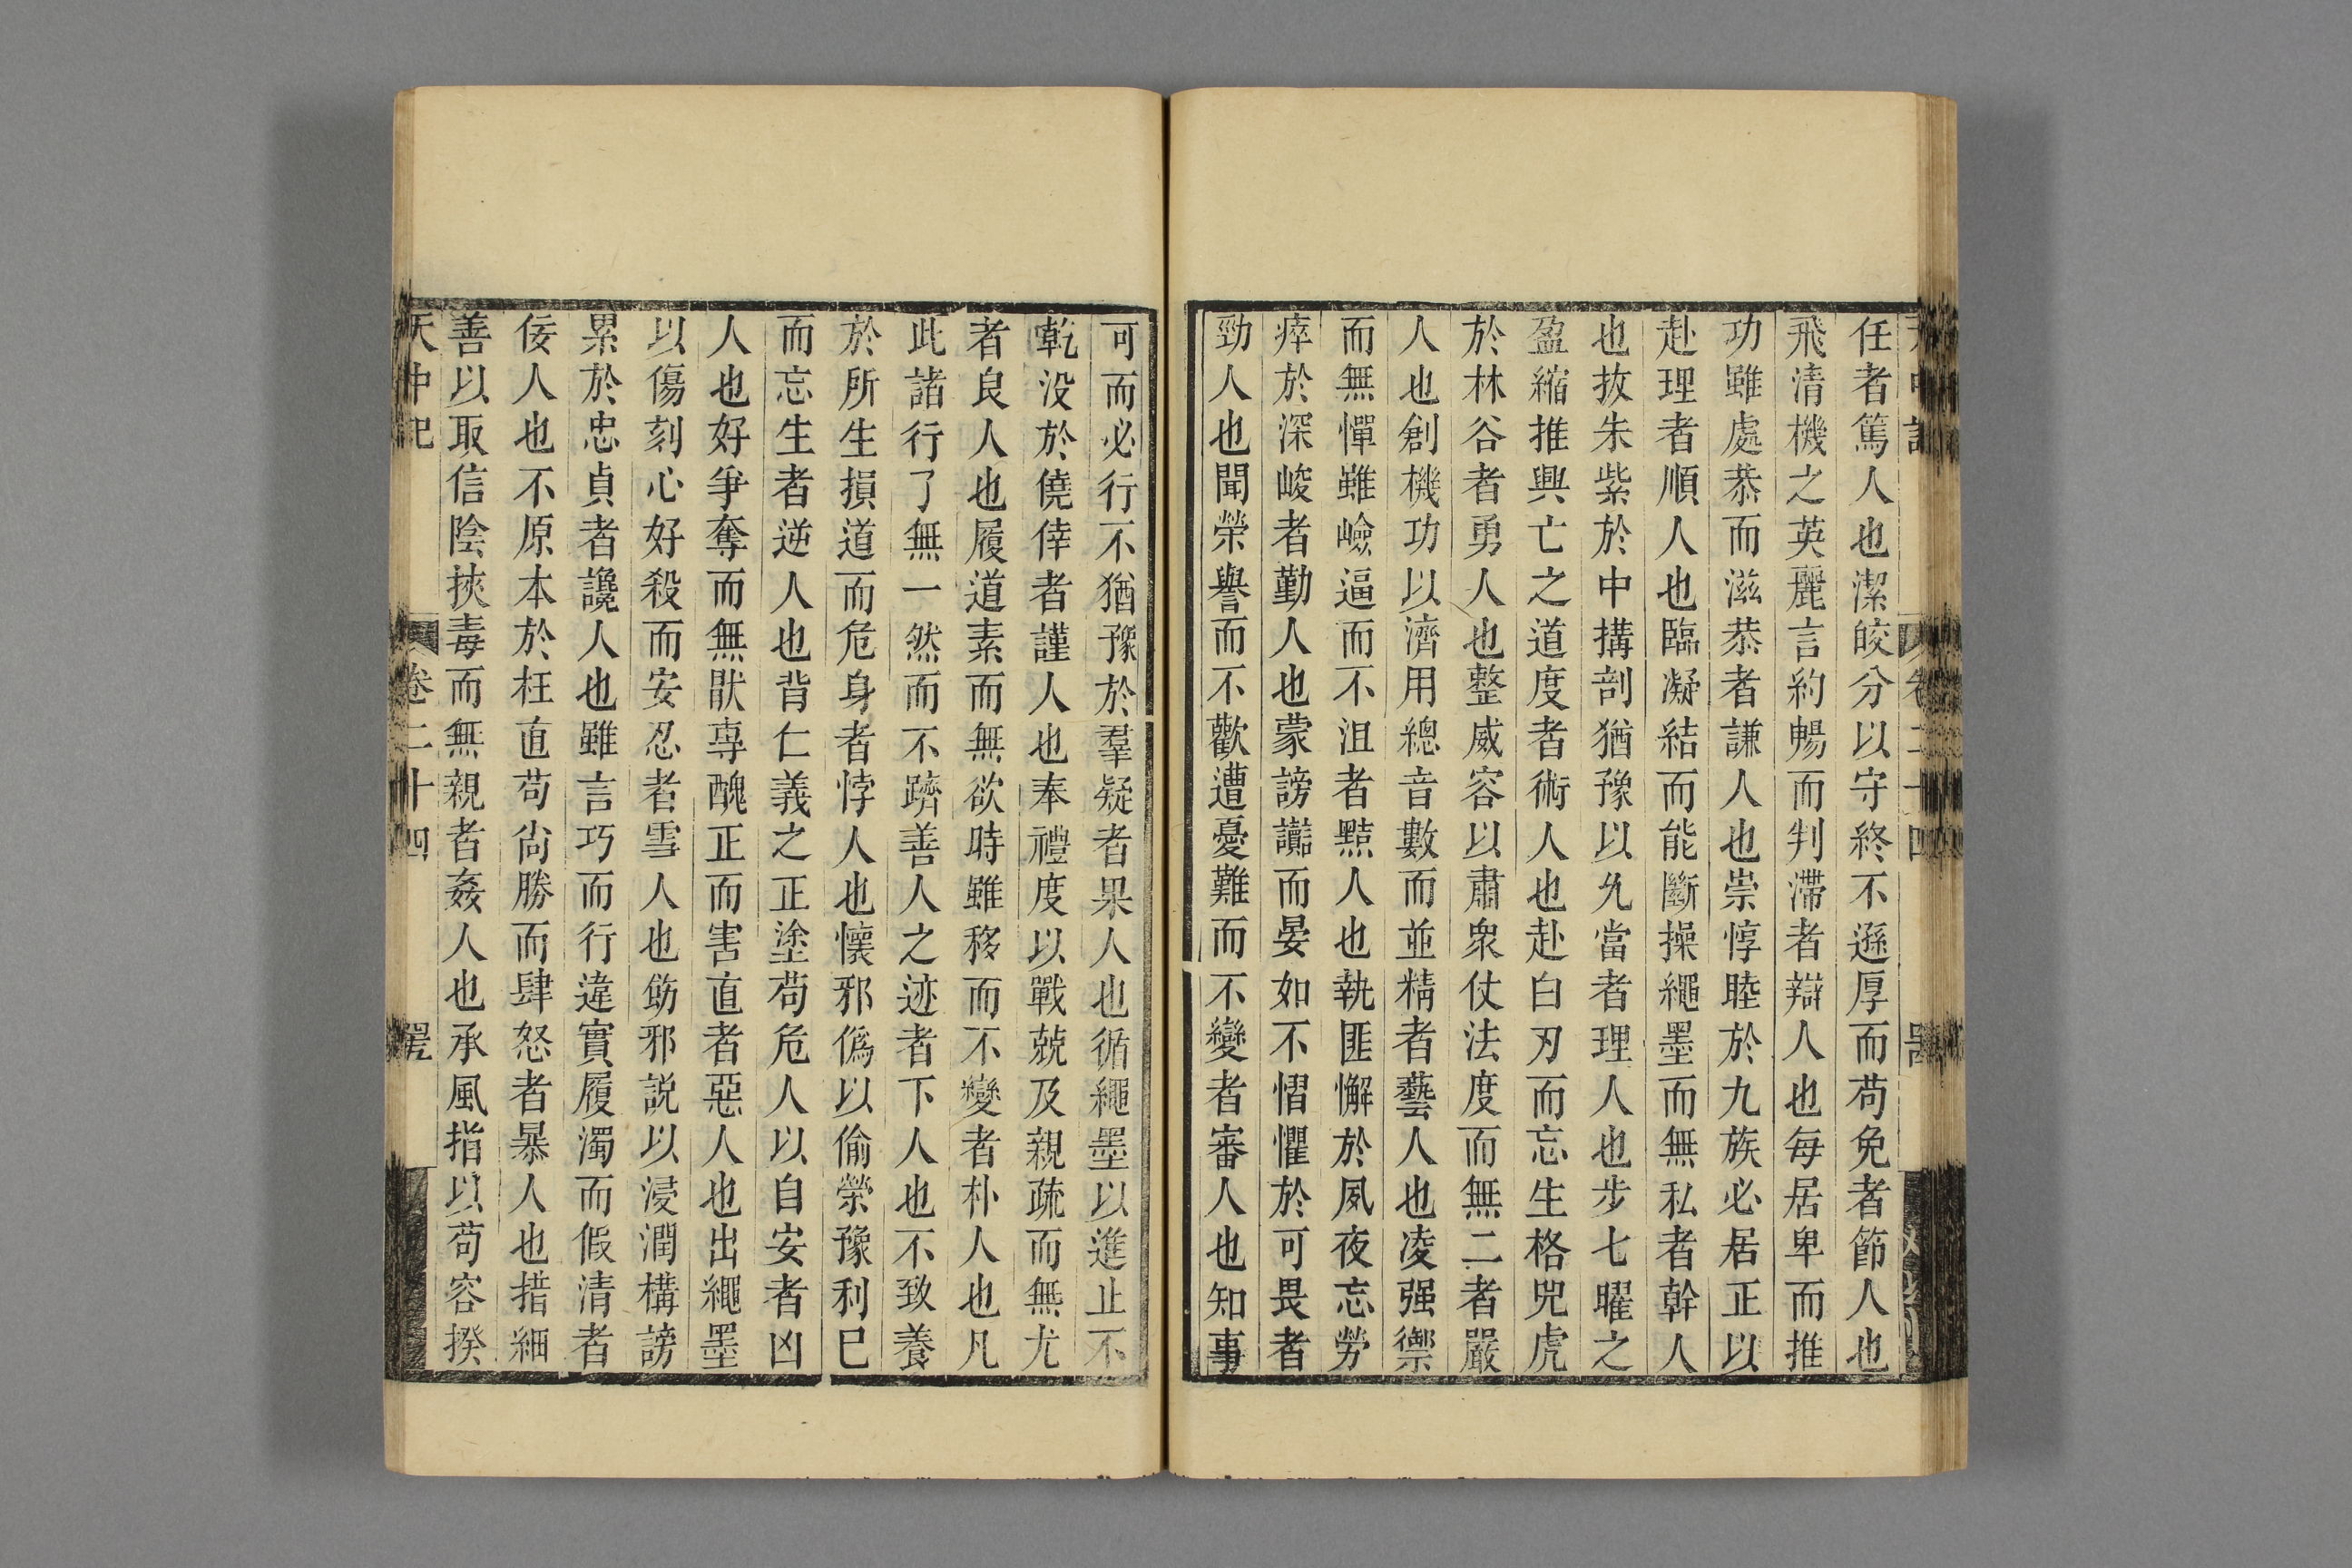 任者篤人也潔皎分以守終不遜厚而苟免者節人也
飛清機之英麗言約暢而判滯者辯人也每居卑而推
功雖處恭而滋恭者謙人也崇惇睦於九族必居正以
赴理者順人也臨凝結而能斷操繩墨而無私者幹人
也拔朱紫於中搆剖猶豫以允當者理人也步七曜之
盈縮推興亡之道度者術人也赴白刃而忘生格兕虎
於林谷者勇人也整威容以肅衆仗法度而無二者嚴
人也創機功以濟用總音數而並精者藝人也凌强禦
而無憚雖嶮逼而不沮者黠人也執匪懈於夙夜忘勞
瘁於深峻者勤人也蒙謗讟而晏如不慴懼於可畏者
勁人也聞榮譽而不歡遭憂難而不變者審人也知事
可而必行不猶豫於羣疑者果人也循繩墨以進止不
乾没於僥倖者謹人也奉禮度以戰兢及親疏而無尤
者良人也履道素而無欲時雖移而不變者朴人也凡
此諸行了無一然而不躋善人之迹者下人也不致養
於所生損道而危身者悖人也懷邪僞以偷榮豫利巳
而忘生者逆人也背仁義之正塗苟危人以自安者凶
人也好爭奪而無猒專醜正而害直者惡人也出繩墨
以傷刻心好殺而安忍者雪人也飭邪説以浸潤構謗
累於忠貞者讒人也雖言巧而行違實履濁而假清者
佞人也不原本於枉直苟尙勝而肆怒者暴人也措細
善以取信陰挾毒而無親者姦人也承風指以苟容揆
天中記 卷二十四